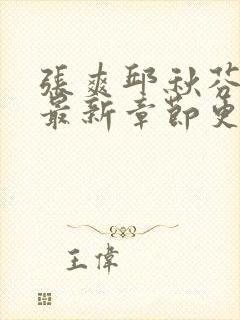 張爽邱秋芬
最新章節更
王偉